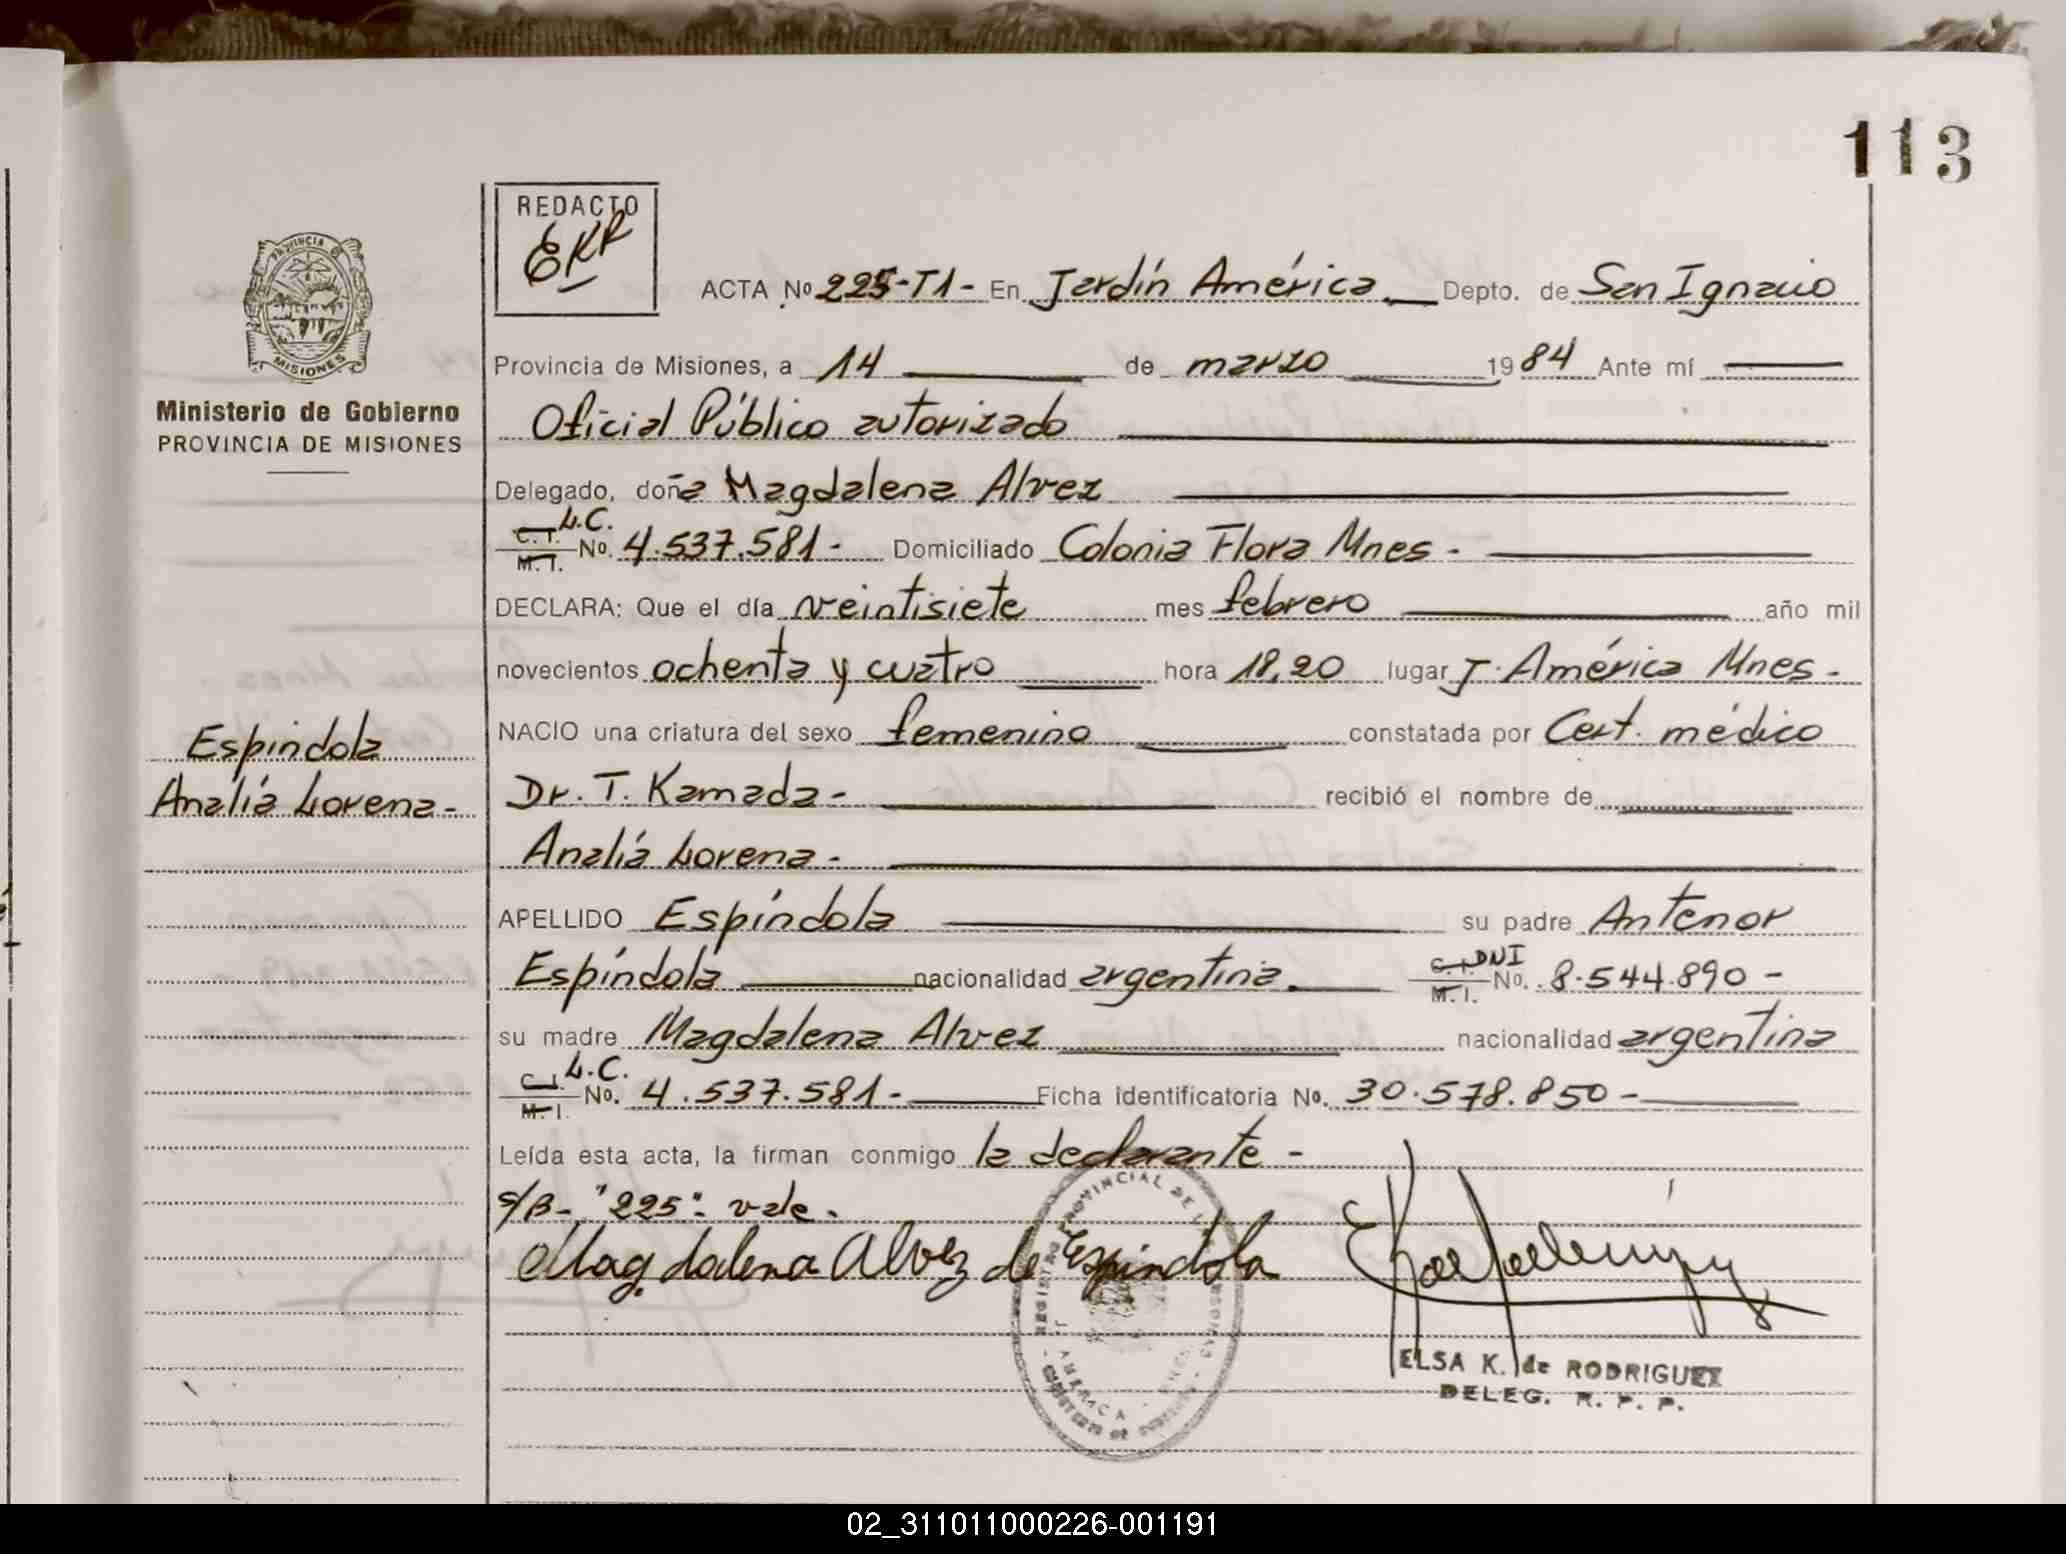 113
REDACTO
EKR
PROVINCIA D
MISIONES
Ministerio de Gobierno
PROVINCIA DE MISIONES
ACTA Nº 225-T1- En Jardín América Depto. de San Ignacio
Provincia de Misiones, a 14 de marzo 1984 Ante mí
Oficial Público autorizado
Delegado, doña Magdalena Alvez
L.C.
C. I.
M. I. Nº. 4.537.581- Domiciliado Colonia Flora Mnes -
DECLARA: Que el día veintisiete mes febrero año mil
novecientos ochenta y cuatro hora 18,20 lugar J. América Mnes -
NACIO una criatura del sexo femenino constatada por Cert. médico
Dr. T. Kamada - recibió el nombre de
Analía Lorena -
Espíndola
Analía Lorena -
APELLIDO Espíndola su padre Antenor
Espíndola nacionalidad argentina C. I. DNI M. I. Nº. 8.544.890 -
su madre Magdalena Alvez nacionalidad argentina
L.C.
C. I.
M. I. Nº. 4.537.581- Ficha identificatoria Nº. 30.578.850 -
Leída esta acta, la firman conmigo la declarante -
s/B- "225": vale -
Magdalena Alvez de Espindola
REGISTRO PROVINCIAL DE LAS PERSONAS
J. AMERICA
MINISTERIO DE GOBIERNO
ELSA K. de RODRIGUEZ
DELEG. R. P. P.
02_311011000226-001191